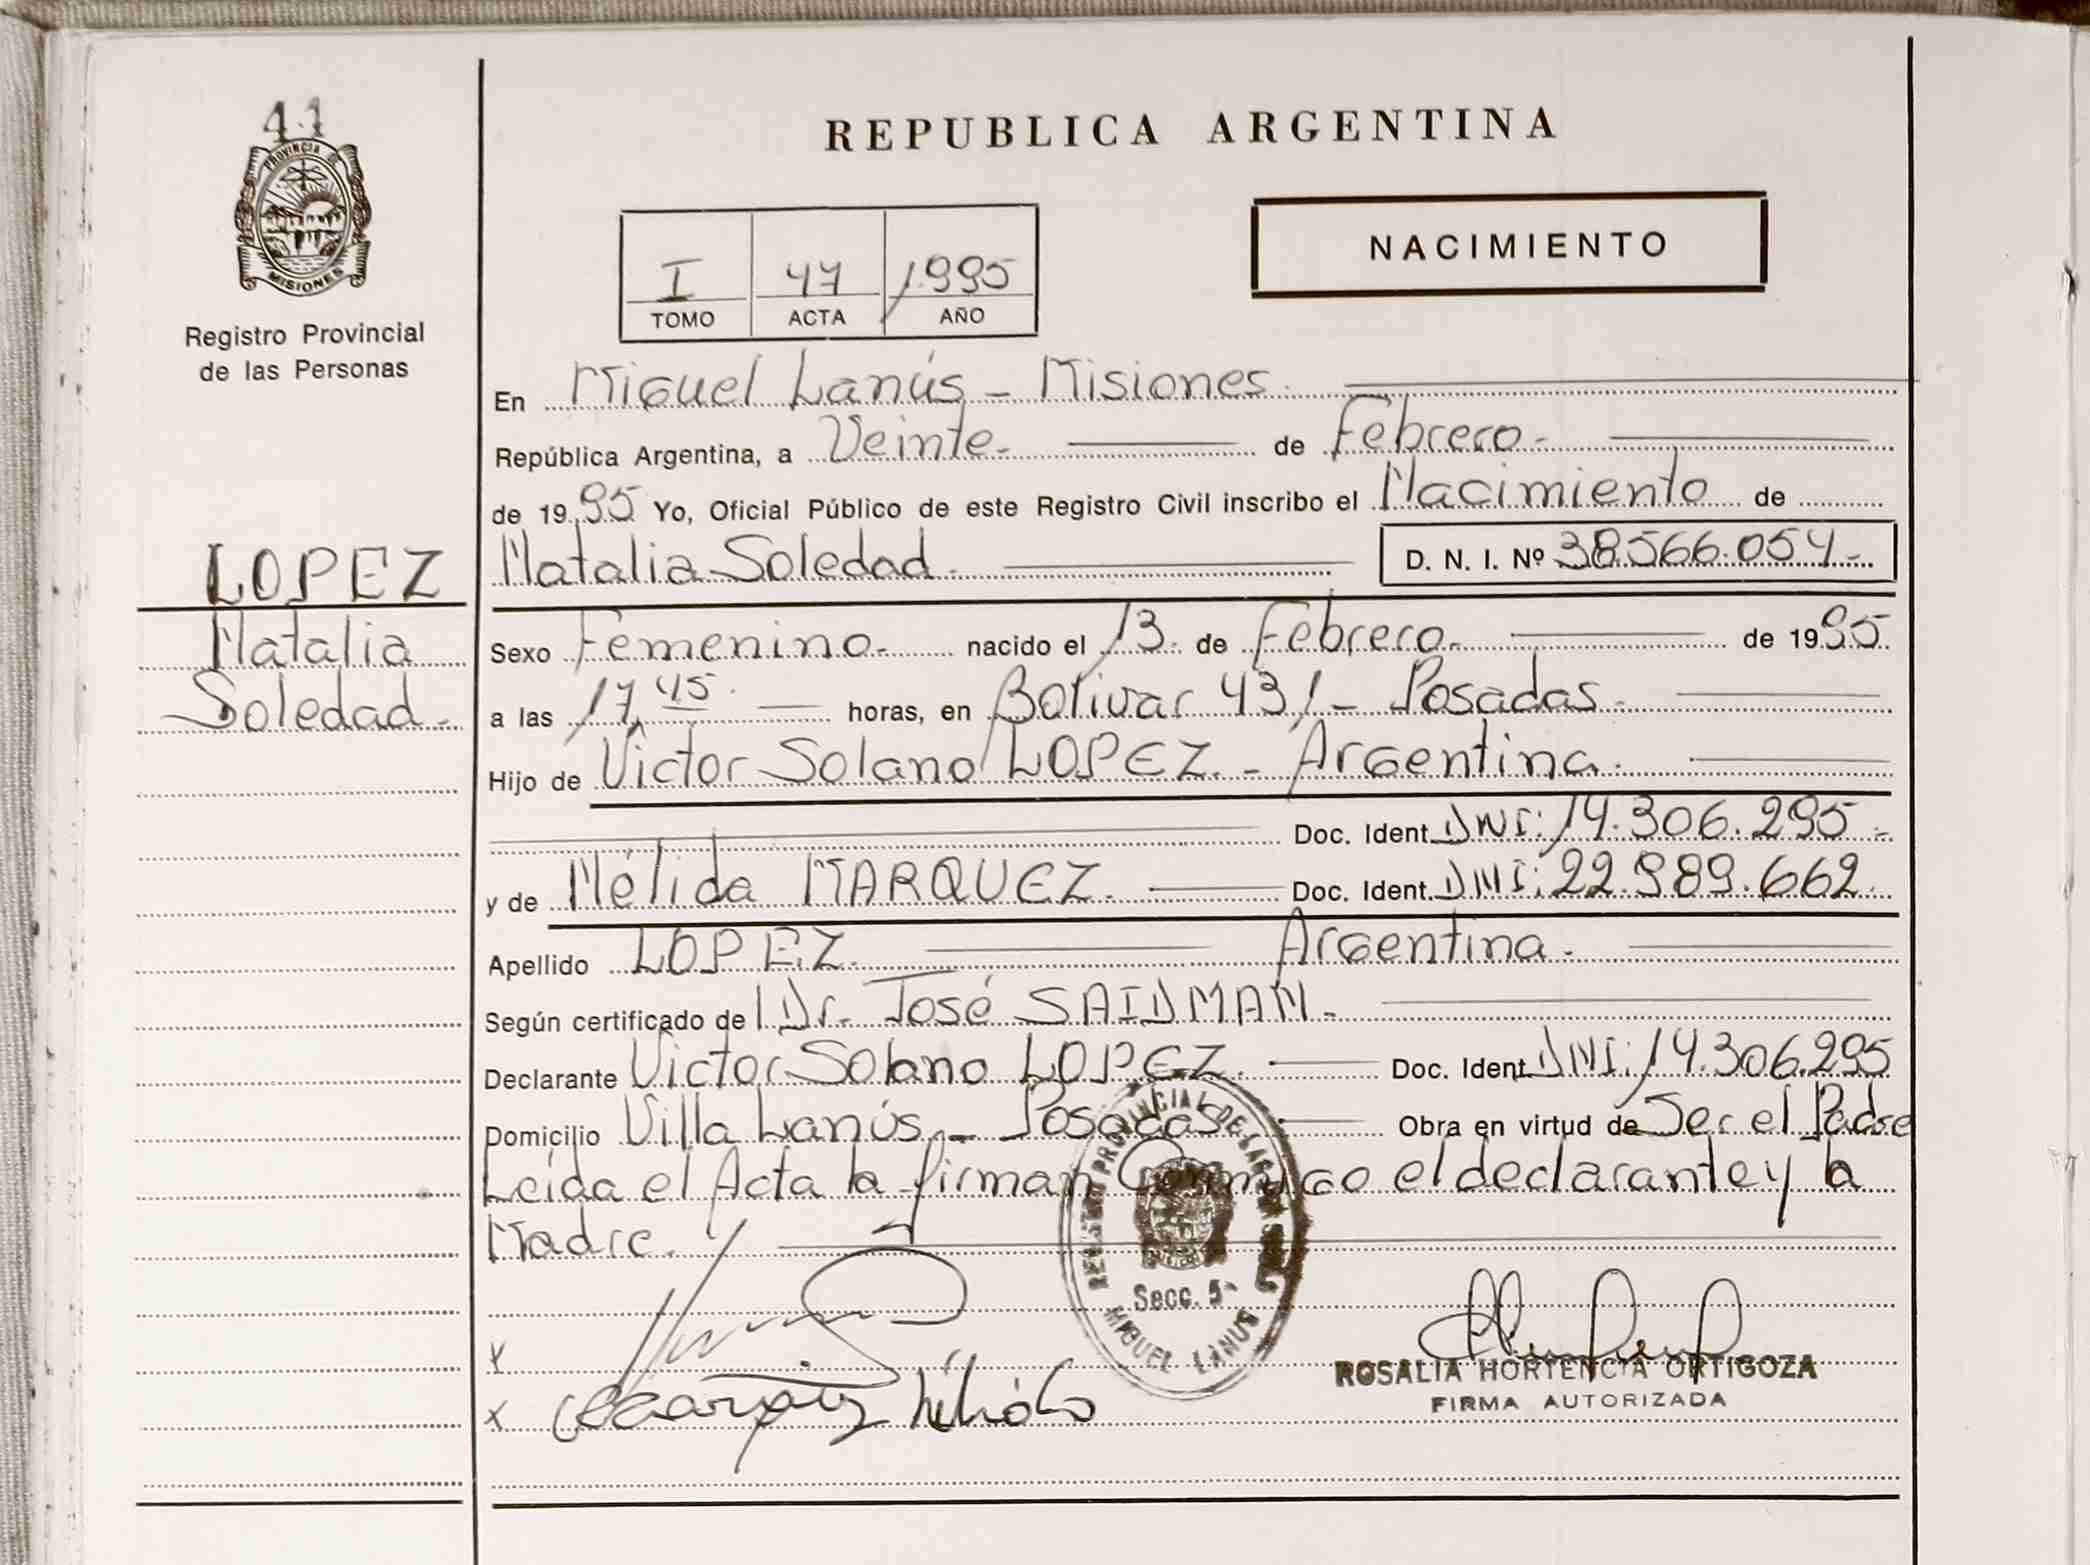 41
PROVINCIA DE
MISIONES
Registro Provincial
de las Personas
LOPEZ
Natalia
Soledad.-
REPUBLICA ARGENTINA
NACIMIENTO
I 47 1995
TOMO ACTA AÑO
En Miguel Lanús - Misiones.
República Argentina, a Veinte.- de Febrero.-
de 1995 Yo, Oficial Público de este Registro Civil inscribo el Nacimiento de
Natalia Soledad. D. N. I. Nº 38.566.054.-
Sexo Femenino.- nacido el 13. de Febrero.- de 1995.
a las 17,45. horas, en Bolivar 431 - Posadas.-
Hijo de Victor Solano LOPEZ.- Argentina.
Doc. Ident. DNI: 14.306.295.-
y de Nélida MARQUEZ. Doc. Ident. DNI: 22.989.662.
Apellido LOPEZ. Argentina.-
Según certificado de Dr. José SAIDMAN.-
Declarante Victor Solano LOPEZ.- Doc. Ident. DNI: 14.306.295
Domicilio Villa Lanús - Posadas Obra en virtud de Ser el Padre
Leída el Acta la firman Conmigo el declarante y la
Madre.
REGISTRO PROVINCIAL DE LAS
Secc. 5-
MIGUEL LANUS
X
X
ROSALIA HORTENCIA ORTIGOZA
FIRMA AUTORIZADA